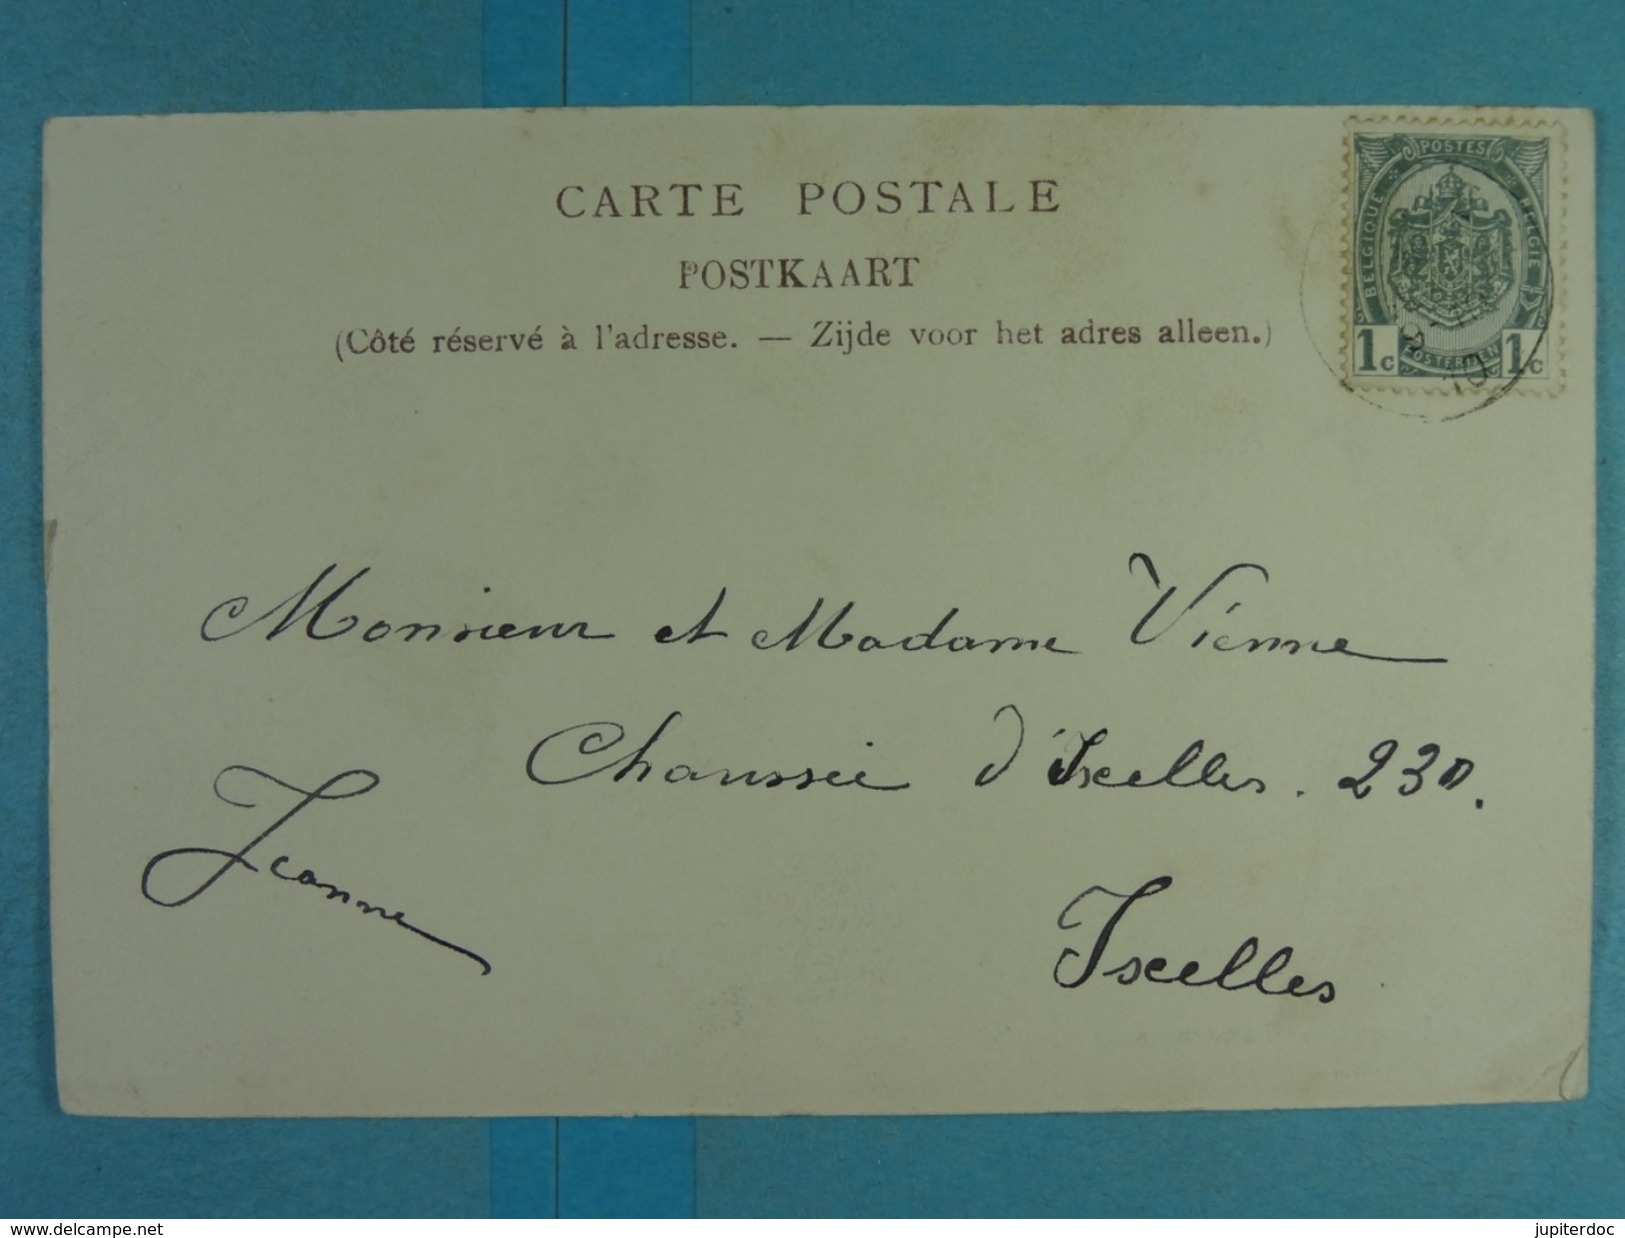 CARTE POSTALE
POSTKAART
(Côté réservé à l'adresse. — Zijde voor het adres alleen.)
POSTES
BELGIQUE
BELGIE
POSTERIJEN
1c 1c
Monsieur et Madame Vienne
Chaussée d'Ixelles. 230.
Jeanne
Ixelles
www.delcampe.net
jupiterdoc